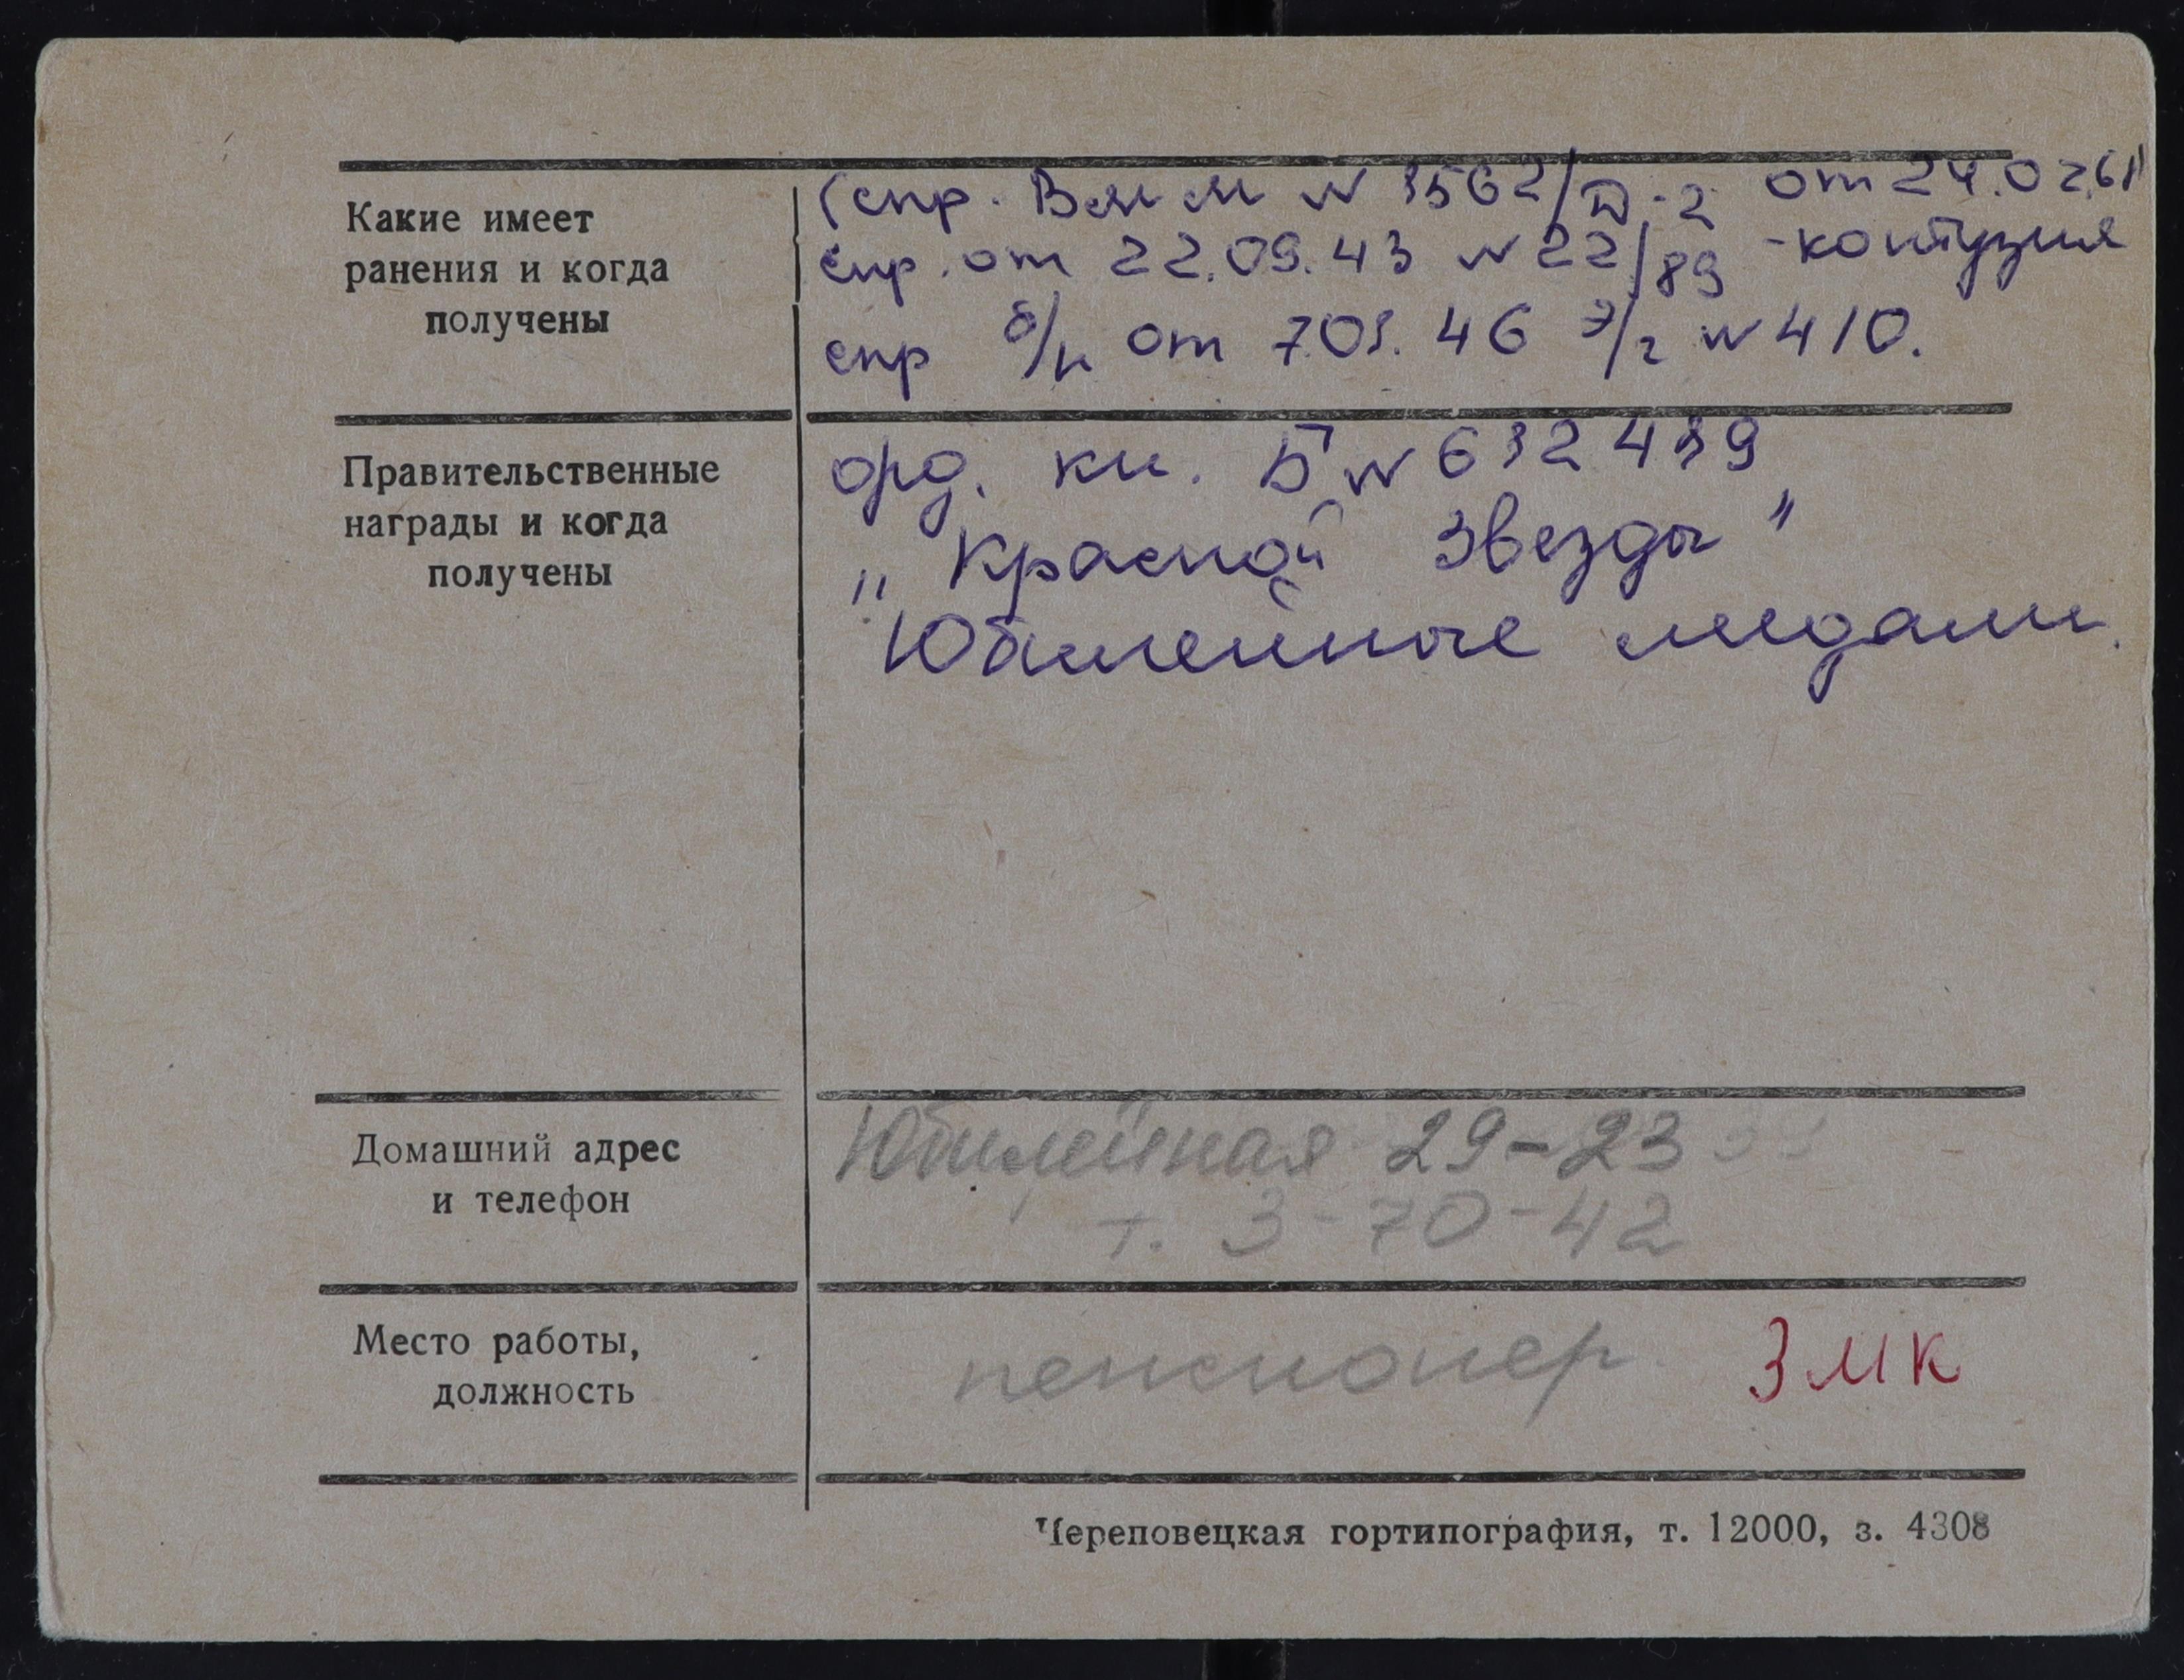 Какие имеет
ранения и когда
получены
(спр. ВММ N 3562/Д-2 от 24.02.61
спр. от 22.09.43 N 22/89 - контузия
спр б/н от 7.03.46 э/г N 410.
Правительственные
награды и когда
получены
орд. кн. Б N 632439
„Красной Звезды"
Юбилейные медали.
Домашний адрес
и телефон
Юбилейная 29-23
т. 3-70-42
Место работы,
должность
пенсионер. ЗМК
Череповецкая гортипография, т. 12000, з. 4308